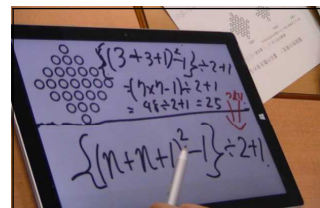 {(3+3+1)²-1}÷2+1
=(7×7-1)÷2+1
=48÷2+1=25
{(n+n+1)²-1}÷2+1